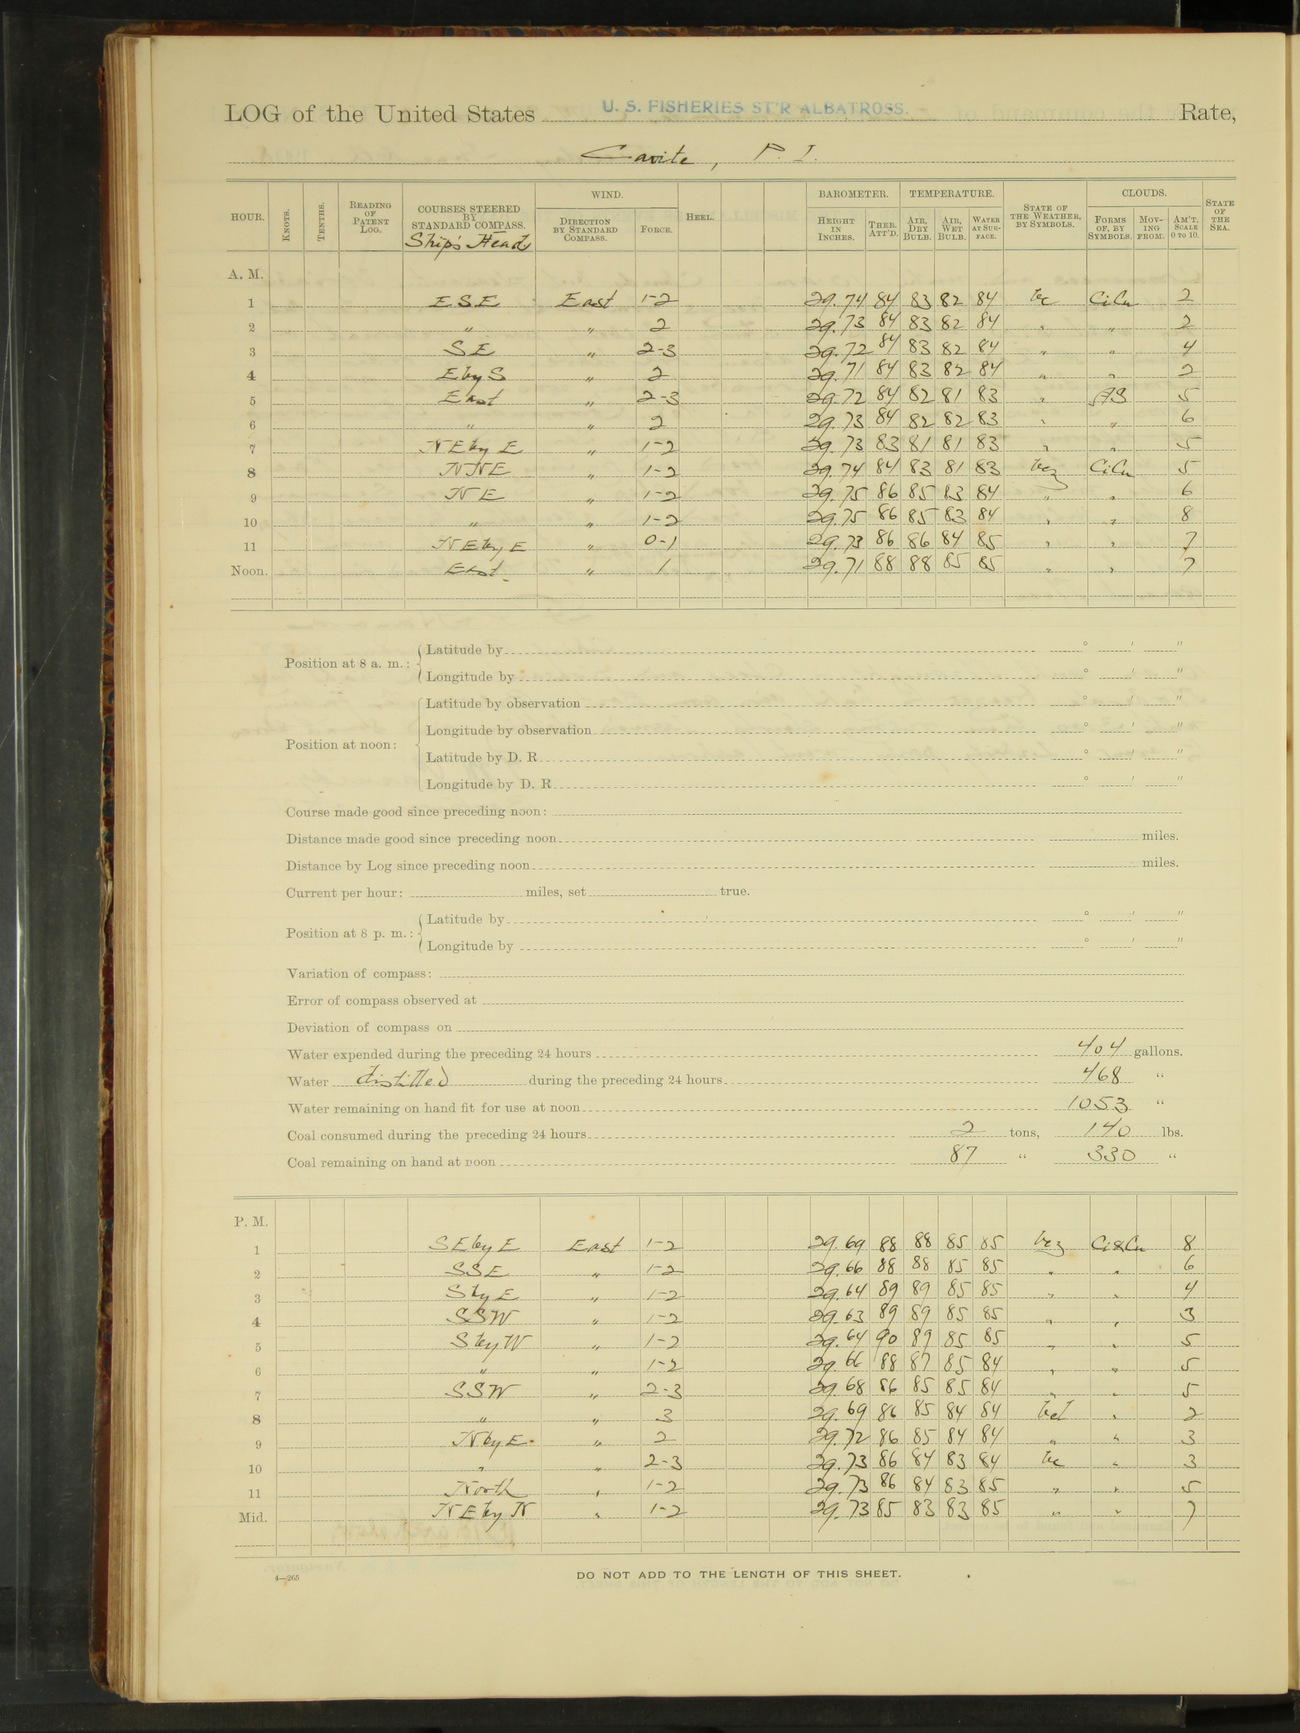 LOG of the United States U. S. FISHERIES ST'R ALBATROSS. Rate,
Cavite, P. I.
HOUR. KNOTS. TENTHS. READING OF PATENT LOG. COURSES STEERED BY STANDARD COMPASS. WIND. DIRECTION BY STANDARD COMPASS. FORCE. HEEL. BAROMETER. HEIGHT IN INCHES. THER. ATT'D. TEMPERATURE. AIR, DRY BULB. AIR, WET BULB. WATER AT SURFACE. STATE OF THE WEATHER, BY SYMBOLS. CLOUDS. FORMS OF, BY SYMBOLS. MOVING FROM. AM'T. SCALE 0 TO 10. STATE OF THE SEA.
Ship's Head
A. M.
1 ESE East 1-2 29.74 84 83 82 84 bc Ci Cu 2
2 " " 2 29.73 84 83 82 84 " " 2
3 SE " 2-3 29.72 84 83 82 84 " " 4
4 E by S " 2 29.71 84 83 82 84 " " 2
5 East " 2-3 29.72 84 82 81 83 " 5
6 " " 2 29.73 84 82 82 83 " " 6
7 NE by E " 1-2 29.73 83 81 81 83 " " 5
8 NNE " 1-2 29.74 84 83 81 83 bcz Ci Cu 5
9 NE " 1-2 29.75 86 85 83 84 " " 6
10 " " 1-2 29.75 86 85 83 84 " " 8
11 NE by E " 0-1 29.73 86 86 84 85 " " 7
Noon. East. " 1 29.71 88 88 85 85 " " 7
Position at 8 a. m.: Latitude by ° ' "
Longitude by ° ' "
Position at noon: Latitude by observation ° ' "
Longitude by observation ° ' "
Latitude by D. R. ° ' "
Longitude by D. R. ° ' "
Course made good since preceding noon:
Distance made good since preceding noon miles.
Distance by Log since preceding noon miles.
Current per hour: miles, set true.
Position at 8 p. m.: Latitude by ° ' "
Longitude by ° ' "
Variation of compass:
Error of compass observed at
Deviation of compass on
Water expended during the preceding 24 hours 404 gallons.
Water distilled during the preceding 24 hours 468 "
Water remaining on hand fit for use at noon 1053 "
Coal consumed during the preceding 24 hours 2 tons, 140 lbs.
Coal remaining on hand at noon 87 " 330 "
P. M.
1 SE by E East 1-2 29.69 88 88 85 85 bcz Ci & Cu 8
2 SSE " 1-2 29.66 88 88 85 85 " " 6
3 S by E " 1-2 29.64 89 89 85 85 " " 4
4 SSW " 1-2 29.63 89 89 85 85 " " 3
5 S by W " 1-2 29.64 90 89 85 85 " " 5
6 " " 1-2 29.66 88 87 85 84 " " 5
7 SSW " 2-3 29.68 86 85 85 84 " " 5
8 " " 3 29.69 86 85 84 84 bcl " 2
9 N by E. " 2 29.72 86 85 84 84 " " 3
10 " " 2-3 29.73 86 84 83 84 bc " 3
11 North " 1-2 29.73 86 84 83 85 " " 5
Mid. NE by N " 1-2 29.73 85 83 83 85 " " 7
4—265
DO NOT ADD TO THE LENGTH OF THIS SHEET.